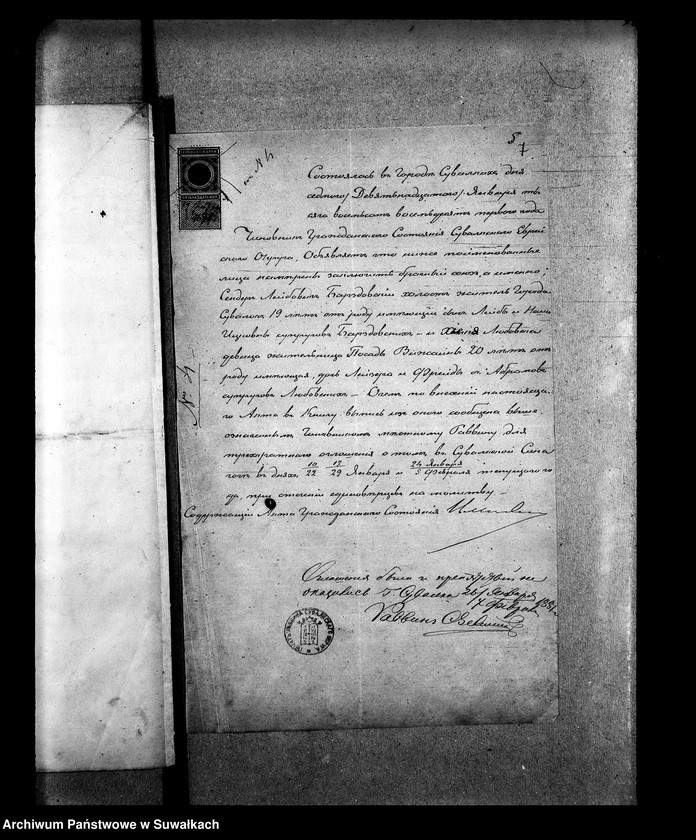 5
7
№ 4
Состоялось въ Городѣ Сувалкахъ дня
седьмого/Девятьнадцатого/Января ты
сяча восемьсотъ восемьдесятъ перваго года
Чиновникъ Гражданскаго Состоянія Сувалкскаго Еврей
скаго Округа, Объявляетъ что ниже поименованные
лица намѣрены заключить брачный союзъ, а именно:
Сендеръ Лейбовичъ холостъ житель Города
Сувалокъ 19 лѣтъ отъ роду имѣющій сынъ Лейбы и
супруговъ — и Любовская
девица жительница Посада Вижайны 20 лѣтъ отъ
роду имѣющая, дочь Лейзера и Фрейды съ Абрамовъ
супруговъ Любовскихъ — О чемъ по внесеніи настояща
го Акта въ Книгу выпись изъ оного сообщена выше
означеннымъ Чиновникомъ мѣстному Раввину для
трехкратнаго оглашенія о томъ въ Сувалкской Сина
гогѣ въ дняхъ 10/22 17/29 Января и 24 Января/5 Февраля текущаго го
да, при стеченіи единовѣрцевъ на молитву —
Содержащій Акта Гражданскаго Состоянія
Оглашенія были и препятствій не
оказалось Г. Сувалки 26/Января
7 Февраля 1881 г.
Раввинъ
Archiwum Państwowe w Suwałkach